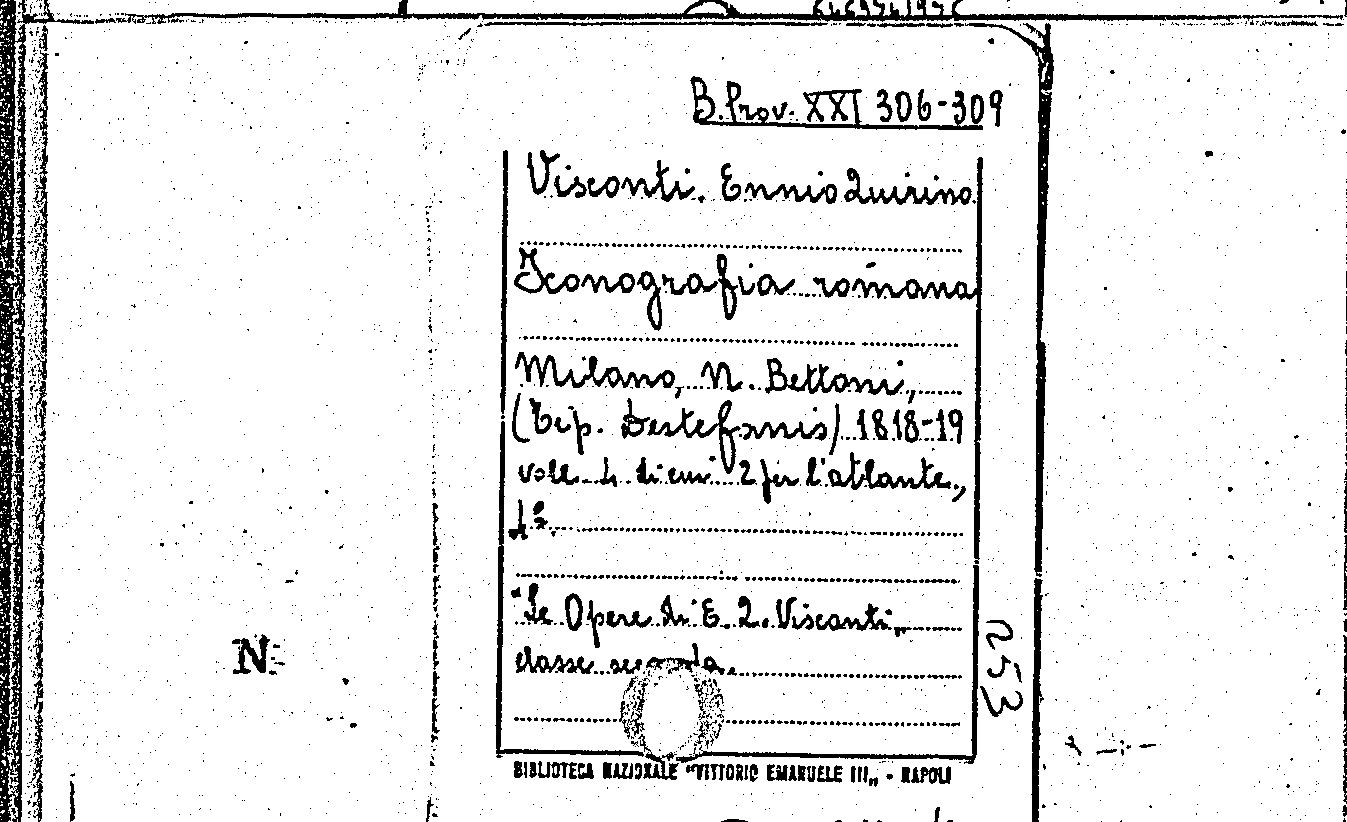 B. Prov. XXI 306-309
Visconti. Ennio Quirino
Iconografia romana
Milano, N. Bettoni,
(Tip. Destefanis) 1818-19
voll. 4 di cui 2 per l'atlante,
4º.
"Le Opere di E. Q. Visconti„
classe seconda.
253
N
BIBLIOTECA NAZIONALE "VITTORIO EMANUELE III„ - NAPOLI